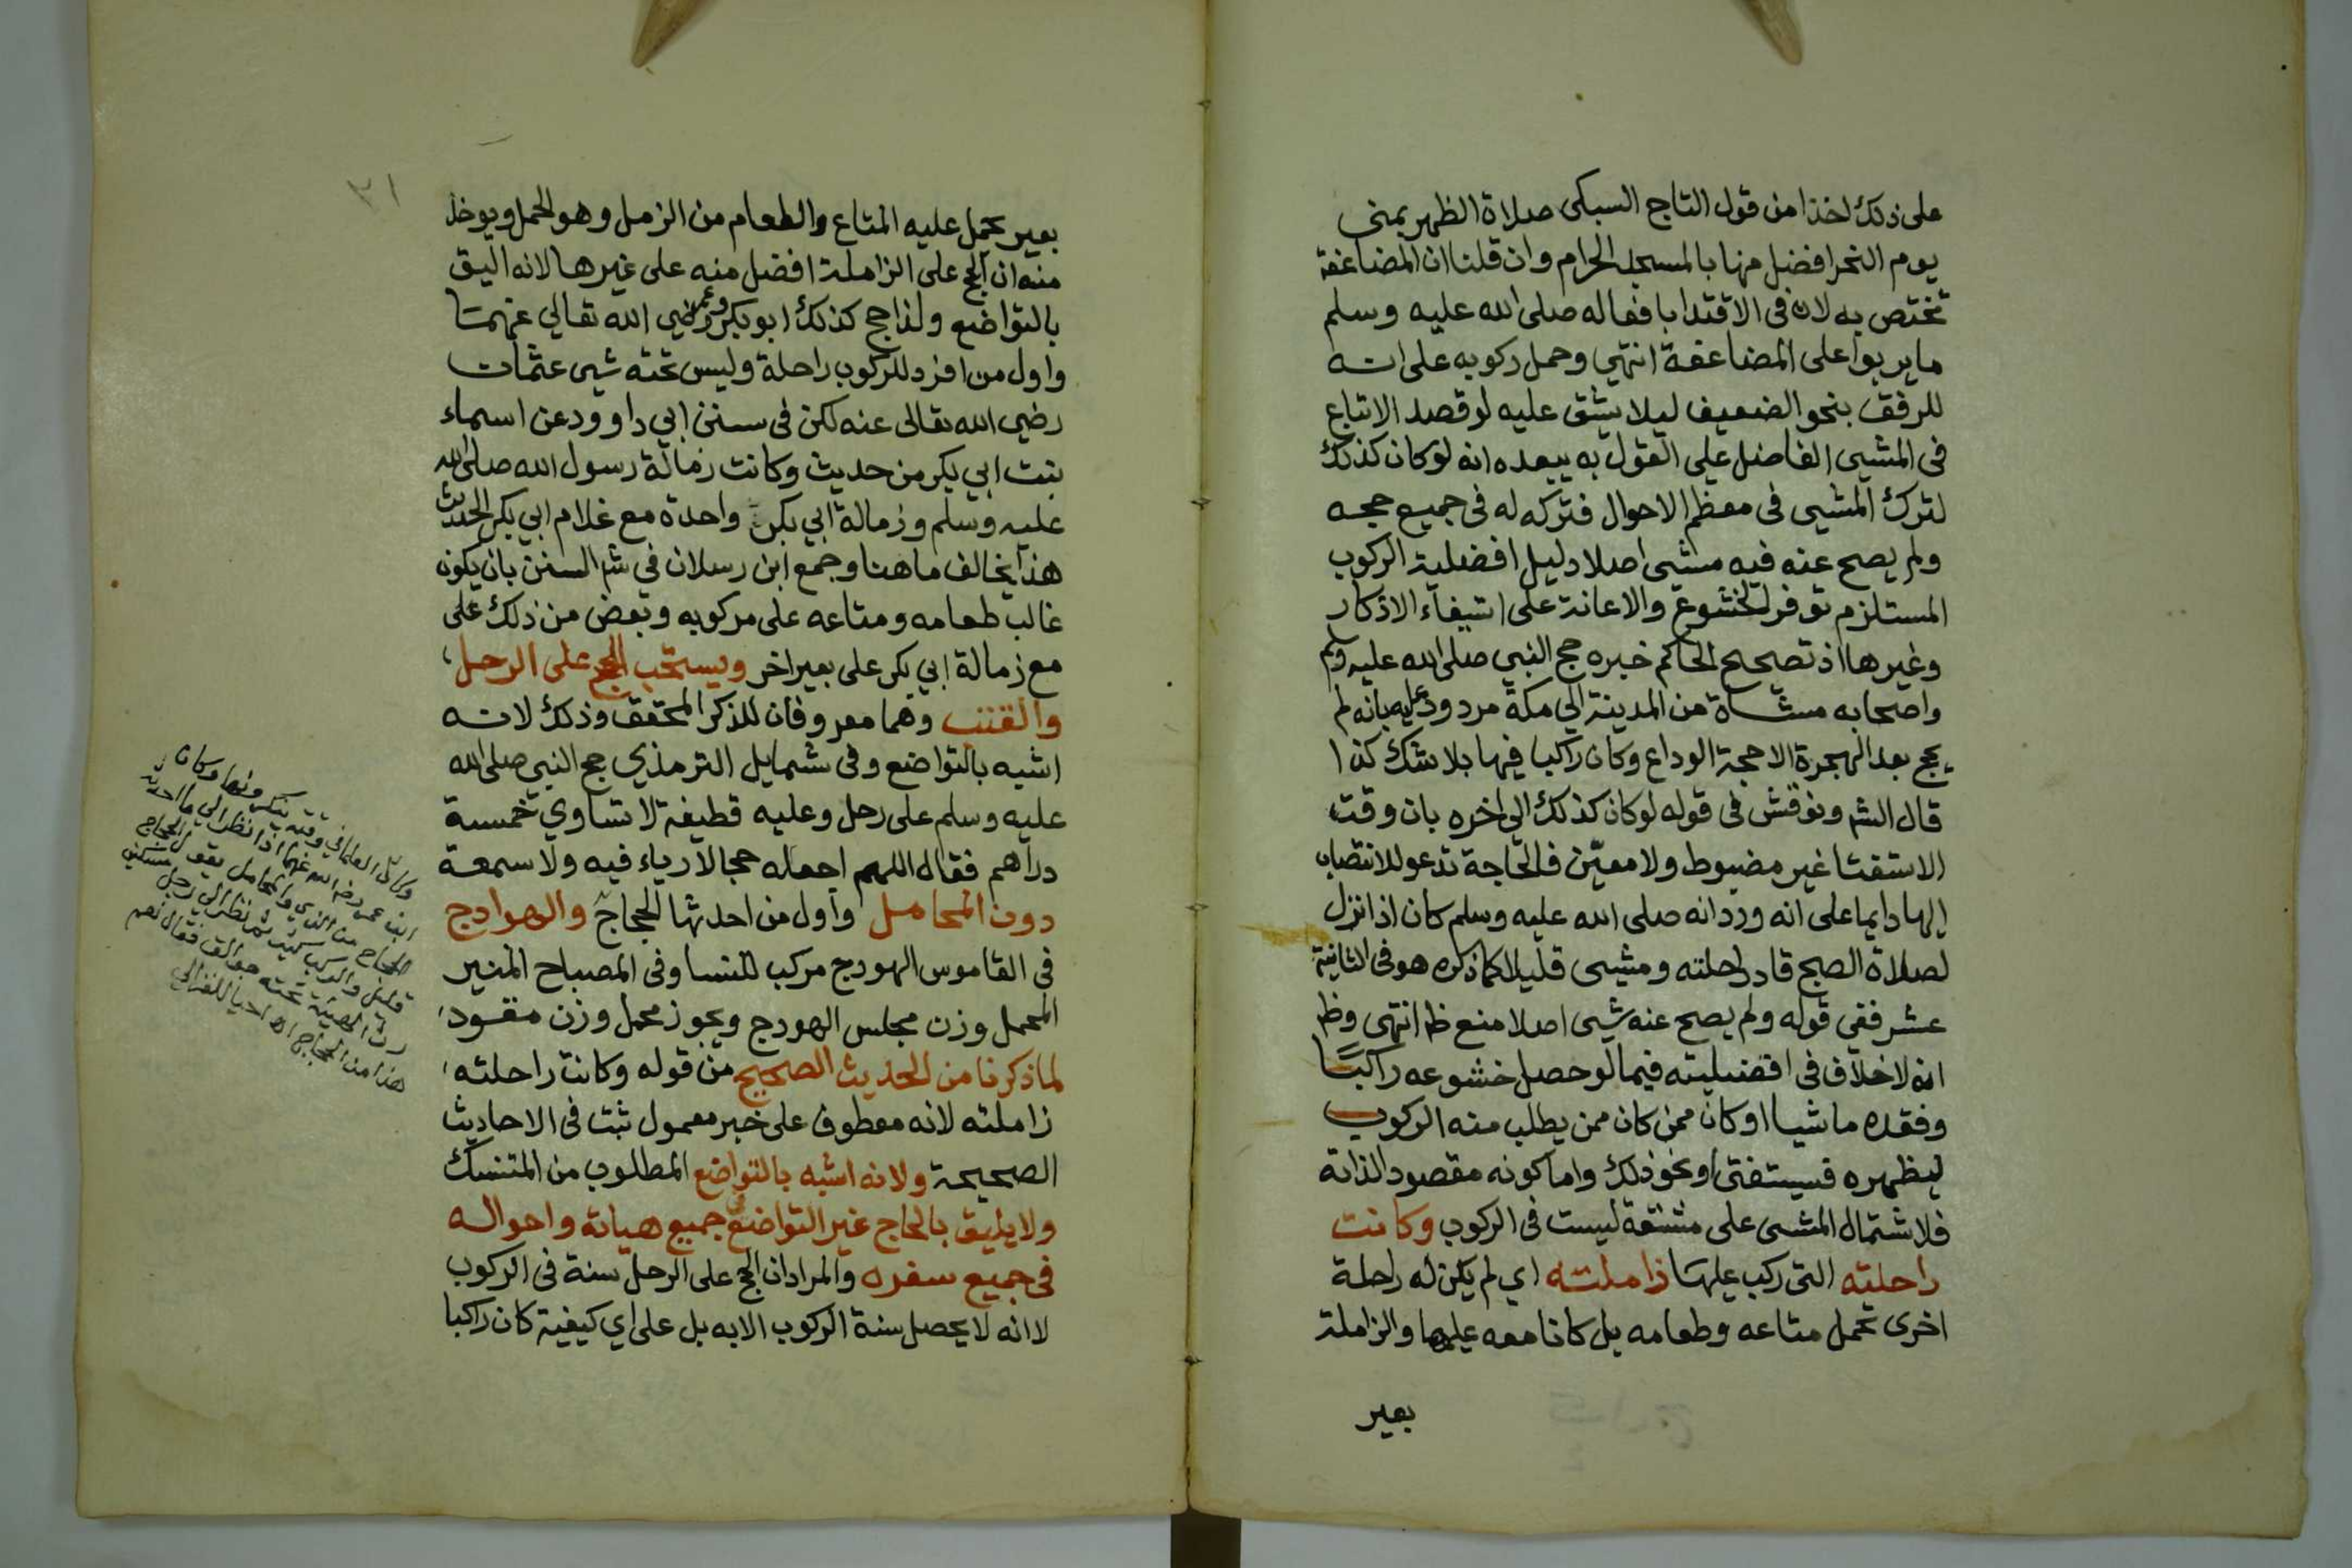 على ذلك اخذا من قول التاج السبكى صلاة الظهر بمنى
يوم النحر افضل منها بالمسجد الحرام وان قلنا ان المضاعفة
تختص به لان فى الاقتدا بافعاله صلى الله عليه وسلم
ما يربوا على المضاعفة انتهي وحمل ركوبه على انه
للرفق بنحو الضعيف ليلا يشق عليه لو قصد الاتباع
فى المشيى الفاضل على القول به يبعده انه لو كان كذلك
لترك المشيى فى معظم الاحوال فتركه له فى جميع حجه
ولم يصح عنه فيه مشيى اصلا دليل افضلية الركوب
المستلزم توفر الخشوع والاعانة على استيفاء الاذكار
وغيرها اذ تصحيح الحاكم خبره حج النبي صلى الله عليه وسلم
واصحابه مشاة من المدينة الي مكة مردود عليه بانه لم
يحج بعد الهجرة الا حجة الوداع وكان راكبا فيها بلا شك كذا
قال الشم ونوقش فى قوله لو كان كذلك الى اخره بان وقت
الاستفتا غير مضبوط ولا معين فالحاجة تدعو للانتصاب
الها دايما على انه ورد انه صلى الله عليه وسلم كان اذا نزل
لصلاة الصبح قاد راحلته ومشيى قليلا كما ذكره هو فى الثانية
عشر ففى قوله ولم يصح عنه شيى اصلا منع ظ انتهى وظ
انه لا خلاف فى افضليته فيما لو حصل خشوعه راكبًا
وفقده ماشيا او كان ممن كان ممن يطلب منه الركوب
ليظهره فيستفتى او نحو ذلك واما كونه مقصودا لذاته
فلاشتمال المشى على مشقة ليست فى الركوب وكانت
راحلته التى ركب عليها زاملته اي لم يكن له راحلة
اخرى تحمل متاعه وطعامه بل كانا معه عليها والزاملة
بعير
٣١
بعير يحمل عليه المتاع والطعام من الزمل وهو الحمل ويوخذ
منه ان الحج على الزاملة افضل منه على غيرها لانه اليق
بالتواضع ولذا حج كذلك ابو بكر وعمر رضي الله تعالي عنهما
واول من افرد للركوب راحلة وليس تحته شيى عثمان
رضي الله تعالى عنه لكن فى سنن ابي داوود عن اسماء
بنت ابي بكر من حديث وكانت زمالة رسول الله صلى الله
عليه وسلم وزمالة ابي بكر واحدة مع غلام ابي بكر الحديث
هذا يخالف ما هنا وجمع ابن رسلان في شم السنن بان يكون
غالب طعامه ومتاعه على مركوبه وبعض من ذلك على
مع زمالة ابي بكر على بعير اخر ويستحب الحج على الرحل
والقتب وهما معروفان للذكر المحقق وذلك لانه
اشبه بالتواضع وفى شمايل الترمذي حج النبي صلى الله
عليه وسلم على رحل وعليه قطيفة لا تساوي خمسة
دراهم فقال اللهم اجعله حجا لا رياء فيه ولا سمعة
دون المحامل واول من احدثها الحجاج والهوادج
فى القاموس الهودج مركب للنسا وفى المصباح المنير
المحمل وزن مجلس الهودج ويجوز محمل وزن مقود
لما ذكرنا من الحديث الصحيح من قوله وكانت راحلته
زاملته لانه معطوف على خبر معمول ثبت فى الاحاديث
الصحيحة ولانه اشبه بالتواضع المطلوب من المتنسك
ولا يليق بالحاج غير التواضع في جميع هيأته واحواله
فى جميع سفره والمراد ان الحج على الرحل سنة فى الركوب
لا انه لا يحصل سنة الركوب الا به بل على اي كيفية كان راكبا
وكان العلما في وقته ينكرونها وكان
ابن عمر رضي الله عنهما اذا نظر الي ما احدث
الحجاج من الزي والمحامل يقول الحاج
قليل والركب كثير ثم نظر الى رجل مسكين
رث الهيئة تحته جوالق فقال نعم
هذا من الحجاج اه احيا للغزالي